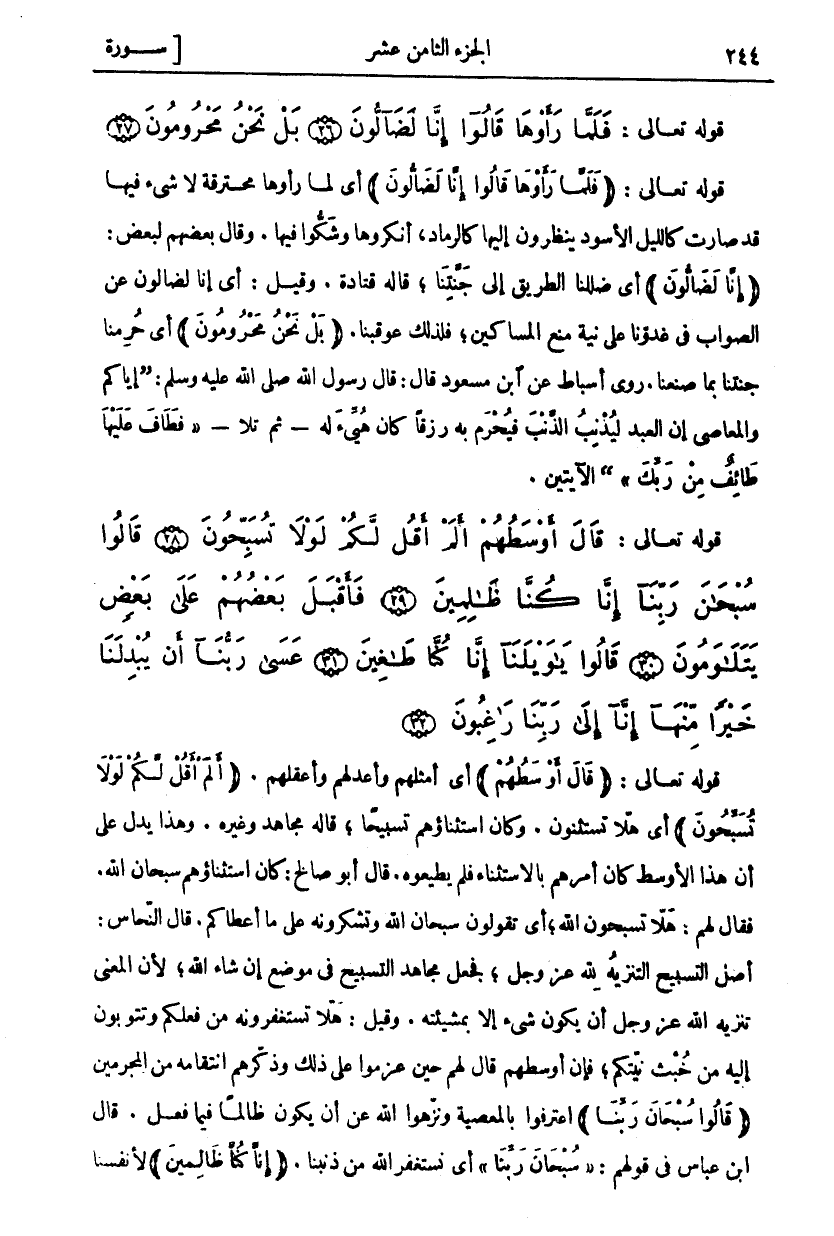 ٢٤٤ الجزء الثامن عشر [ ســورة
قوله تعالى : فَلَمَّا رَأَوْهَا قَالُوٓا إِنَّا لَضَآلُّونَ ﴿٢٦﴾ بَلْ نَحْنُ مَحْرُومُونَ ﴿٢٧﴾
قوله تعالى : ﴿ فَلَمَّا رَأَوْهَا قَالُوا إِنَّا لَضَالُّونَ ﴾ أى لما رأوها محترقة لا شىء فيها
قد صارت كالليل الأسود ينظرون إليها كالرماد، أنكروها وشَكُّوا فيها . وقال بعضهم لبعض :
﴿ إِنَّا لَضَالُّونَ ﴾ أى ضللنا الطريق إلى جَنَّتِنا ؛ قاله قتادة . وقيل : أى إنا لضالون عن
الصواب فى غدوّنا على نية منع المساكين؛ فلذلك عوقبنا. ﴿ بَلْ نَحْنُ مَحْرُومُونَ ﴾ أى حُرِمنا
جنتنا بما صنعنا. روى أسباط عن ٱبن مسعود قال : قال رسول الله صلى الله عليه وسلم : ”إياكم
والمعاصى إن العبد لَيُذْنِبُ الذَّنْبَ فيُحْرَم به رزقاً كان هُيِّءَ له – ثم تلا – « فَطَافَ عَلَيْهَا
طَائِفٌ مِنْ رَبِّكَ » “ الآيتين .
قوله تعالى : قَالَ أَوْسَطُهُمْ أَلَمْ أَقُل لَّكُمْ لَوْلَا تُسَبِّحُونَ ﴿٢٨﴾ قَالُوا
سُبْحَٰنَ رَبِّنَآ إِنَّا كُنَّا ظَٰلِمِينَ ﴿٢٩﴾ فَأَقْبَلَ بَعْضُهُمْ عَلَىٰ بَعْضٍ
يَتَلَٰوَمُونَ ﴿٣٠﴾ قَالُوا يَٰوَيْلَنَآ إِنَّا كُنَّا طَٰغِينَ ﴿٣١﴾ عَسَىٰ رَبُّنَآ أَن يُبْدِلَنَا
خَيْرًا مِّنْهَآ إِنَّآ إِلَىٰ رَبِّنَا رَٰغِبُونَ ﴿٣٢﴾
قوله تعالى : ﴿ قَالَ أَوْسَطُهُمْ ﴾ أى أمثلهم وأعدلهم وأعقلهم . ﴿ أَلَمْ أَقُلْ لَّكُمْ لَوْلَا
تُسَبِّحُونَ ﴾ أى هلّا تستثنون . وكان استثناؤهم تسبيحًا ؛ قاله مجاهد وغيره . وهذا يدل على
أن هذا الأوسط كان أمرهم بالاستثناء فلم يطيعوه. قال أبو صالح : كان استثناؤهم سبحان الله.
فقال لهم : هَلّا تسبحون الله ؛ أى تقولون سبحان الله وتشكرونه على ما أعطاكم. قال النّحاس :
أصل التسبيح التنزيهُ لله عز وجل ؛ فجعل مجاهد التسبيح فى موضع إن شاء الله ؛ لأن المعنى
تنزيه الله عز وجل أن يكون شىء إلا بمشيئته . وقيل : هلّا تستغفرونه من فعلكم وتتوبون
إليه من خُبْث نيّتكم ؛ فإن أوسطهم قال لهم حين عزموا على ذلك وذكّرهم انتقامه من المجرمين
﴿ قَالُوا سُبْحَانَ رَبِّنَـا ﴾ اعترفوا بالمعصية ونزّهوا الله عن أن يكون ظالمًا فيما فعل . قال
ابن عباس فى قولهم : « سُبْحَانَ رَبِّنَا » أى نستغفر الله من ذنبنا . ﴿ إِنَّا كُنَّا ظَالِمِينَ ﴾ لأنفسنا